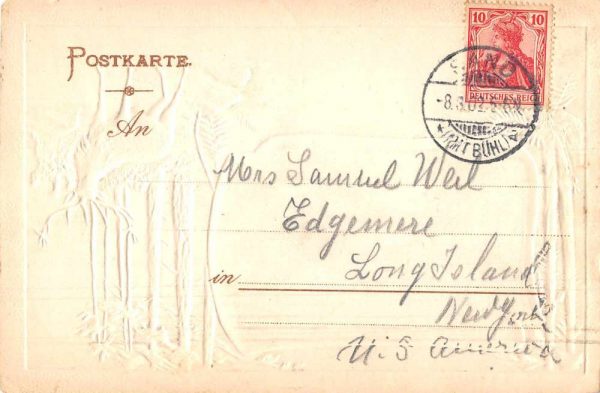 POSTKARTE.
10 10
DEUTSCHES REICH
SAND
(AMT BÜHL)
An
Mrs Samuel Weil
Edgemere
Long Island
in
New York
U.S America